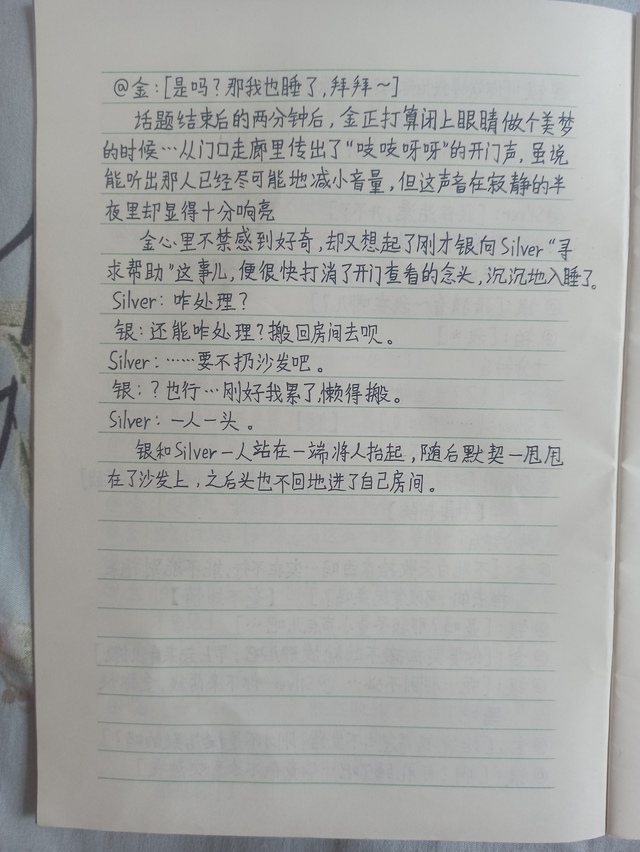 @金:[是吗?那我也睡了,拜拜~]
话题结束后的两分钟后,金正打算闭上眼睛做个美梦
的时候…从门口走廊里传出了“吱吱呀呀”的开门声,虽说
能听出那人已经尽可能地减小音量,但这声音在寂静的半
夜里却显得十分响亮
金心里不禁感到好奇,却又想起了刚才银向Silver“寻
求帮助”这事儿,便很快打消了开门查看的念头,沉沉地入睡了。
Silver:咋处理?
银:还能咋处理?搬回房间去呗。
Silver:……要不扔沙发吧。
银:?也行…刚好我累了,懒得搬。
Silver:一人一头。
银和Silver一人站在一端将人抬起,随后默契一甩甩
在了沙发上,之后头也不回地进了自己房间。